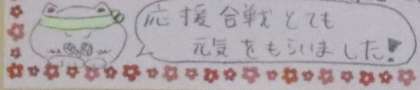 応援合戦とても
元気をもらいました!